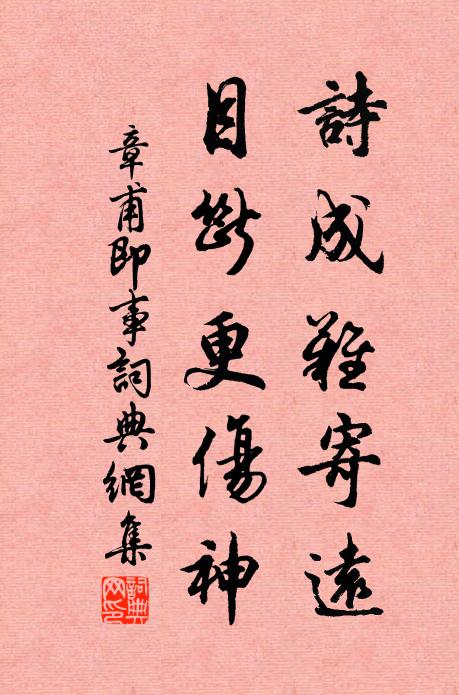 詩成難寄遠
目斷更傷神
章甫即事詞典網集
詞典網印